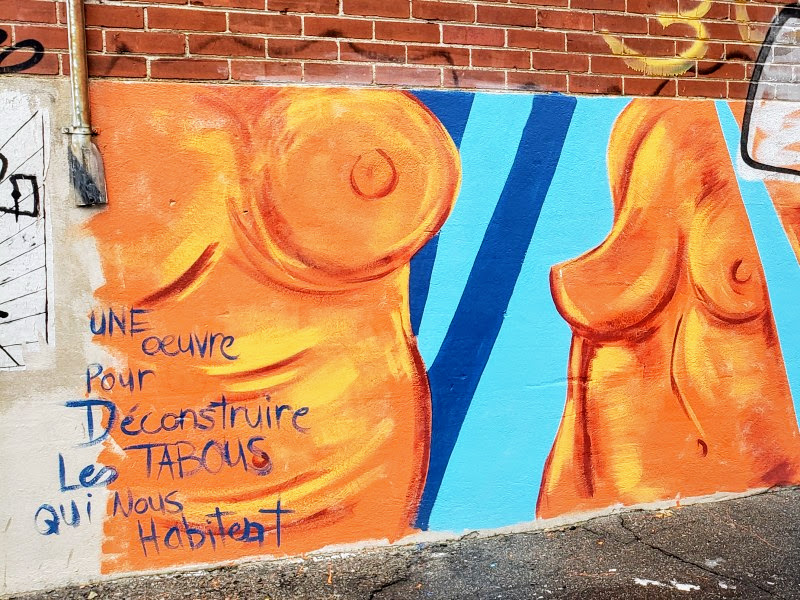 UNE
oeuvre
Pour
Déconstruire
Les TABOUS
QUi Nous
Habitent